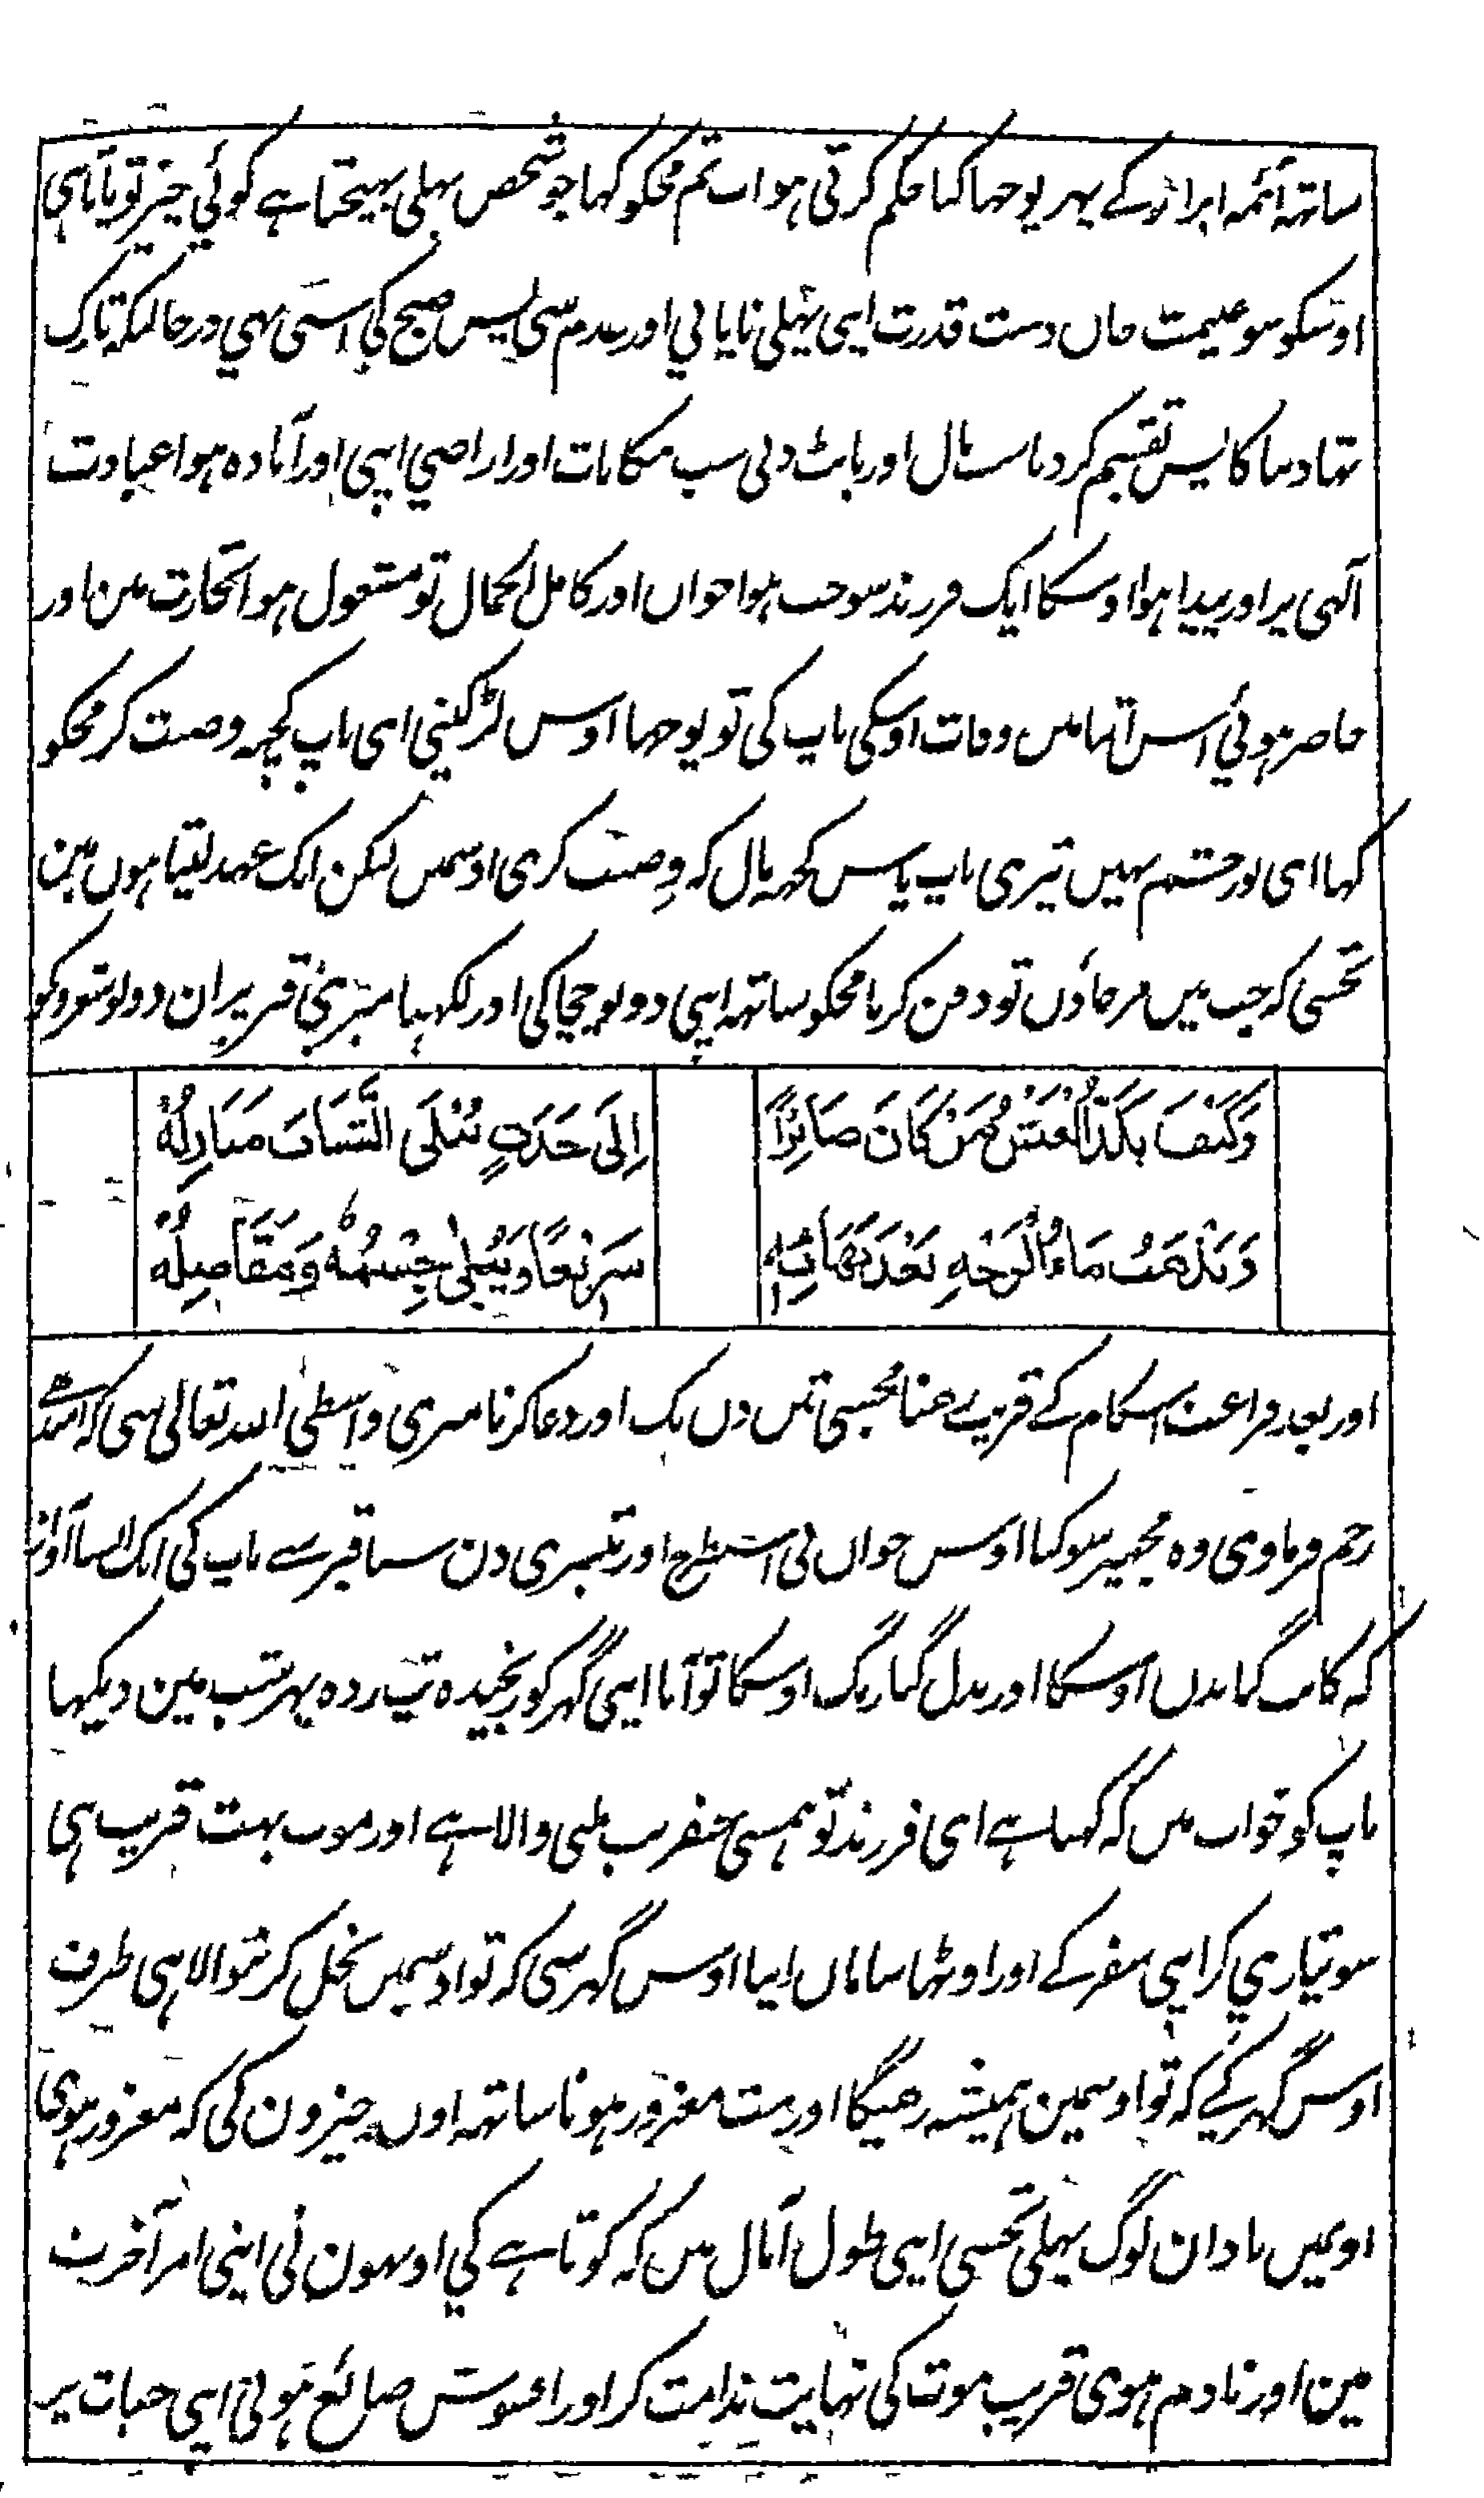 ساتہہ ائمہ ابرار کے پہر پوچہا کیا حکم کرتی ہو اب تم مجکو کہا جو شخص پہلی بہیجتا ہے کوئی چیز تو پاتا ہی
اوسکو سو غنیمت جان دست قدرت اپنی پہلی نایابی اور عدم سی پس صبح کی اسنی بہی درحالیکہ تارک
تہا دنیا کا پس تقسیم کر دیا سب مال اور بانٹ دی سب مکانات اور اراضی اپنی اور آمادہ ہوا عبادت
الہی پر اور پیدا ہوا اوسکا ایک فرزند سو جب ہوا جوان اور کامل الجمال تو مشغول ہوا تجارت مین اور
حاضر ہوئی اس اثنا میں وفات اوسکی باپ کی تو پوچہا اوس لڑکینی ای باپ کچہہ وصیت کر مجکو
کہا ای نور چشم نہیں تیری باپ پاس کچہہ مال کہ وصیت کری اوسمیں لیکن ایک عہد لیتا ہوں مین
تجسی کہ جب میں مر جاؤں تو دفن کرنا مجکو ساتہہ اپنی دونو چچا کی اور لکہنا میری قبر پر ان دونو شعرونکو
وَكَيْفَ يَلَذُّ الْعَيْشَ مَنْ كَانَ صَائِرًا إِلَى جَدَثٍ تُبْلَى الشَّبَابَ مَنَازِلُهُ
وَيَذْهَبُ مَاءُ الْوَجْهِ بَعْدَ بَهَائِهِ سَرِيْعًا وَيَبْلٰى جِسْمُهٗ وَمَفَاصِلُهٗ
اور بعد فراغت اسکام کے قریب رہنا مجسی تین دن تک اور دعا کرنا میری واسطی اللہ تعالی سی کہ
رحم فرماوی وہ مجہپر سو کیا اوس جوان نی اسیطرح اور تیسری دن سنا قبر سے باپ کی ایک ایسا آواز
کہ کانپ گیا بدن اوسکا اور بدل گیا رنگ اوسکا تو آیا اپنی گہر کو رنجیدہ تپ زدہ پہر شب مین دیکہا
باپ کو خواب میں کہ کہتا ہے ای فرزند تو ہمسی عنقریب ملنی والا ہے اور موت بہت قریب ہی
سو تیاری کر اپنی سفر کے اور اوٹہا سامان اپنا اوس گہر سی کہ تو اوسمیں نخل کرنیوالا ہی طرف
اوس گہر کے کہ تو اوسمین ہمیشہ رہیگا اور مت مغرور ہونا ساتہہ اون چیزون کی کہ مغرور ہوی
اونمیں نادان لوگ پہلی تجسی اپنی طول آمال میں کہ کوتاہے کی اونہون نی اپنی امر آخرت
مین اور نادم ہوی قریب موت کی نہایت ندامت کر اور افسوس ضائع ہونی اپنی حیات پر